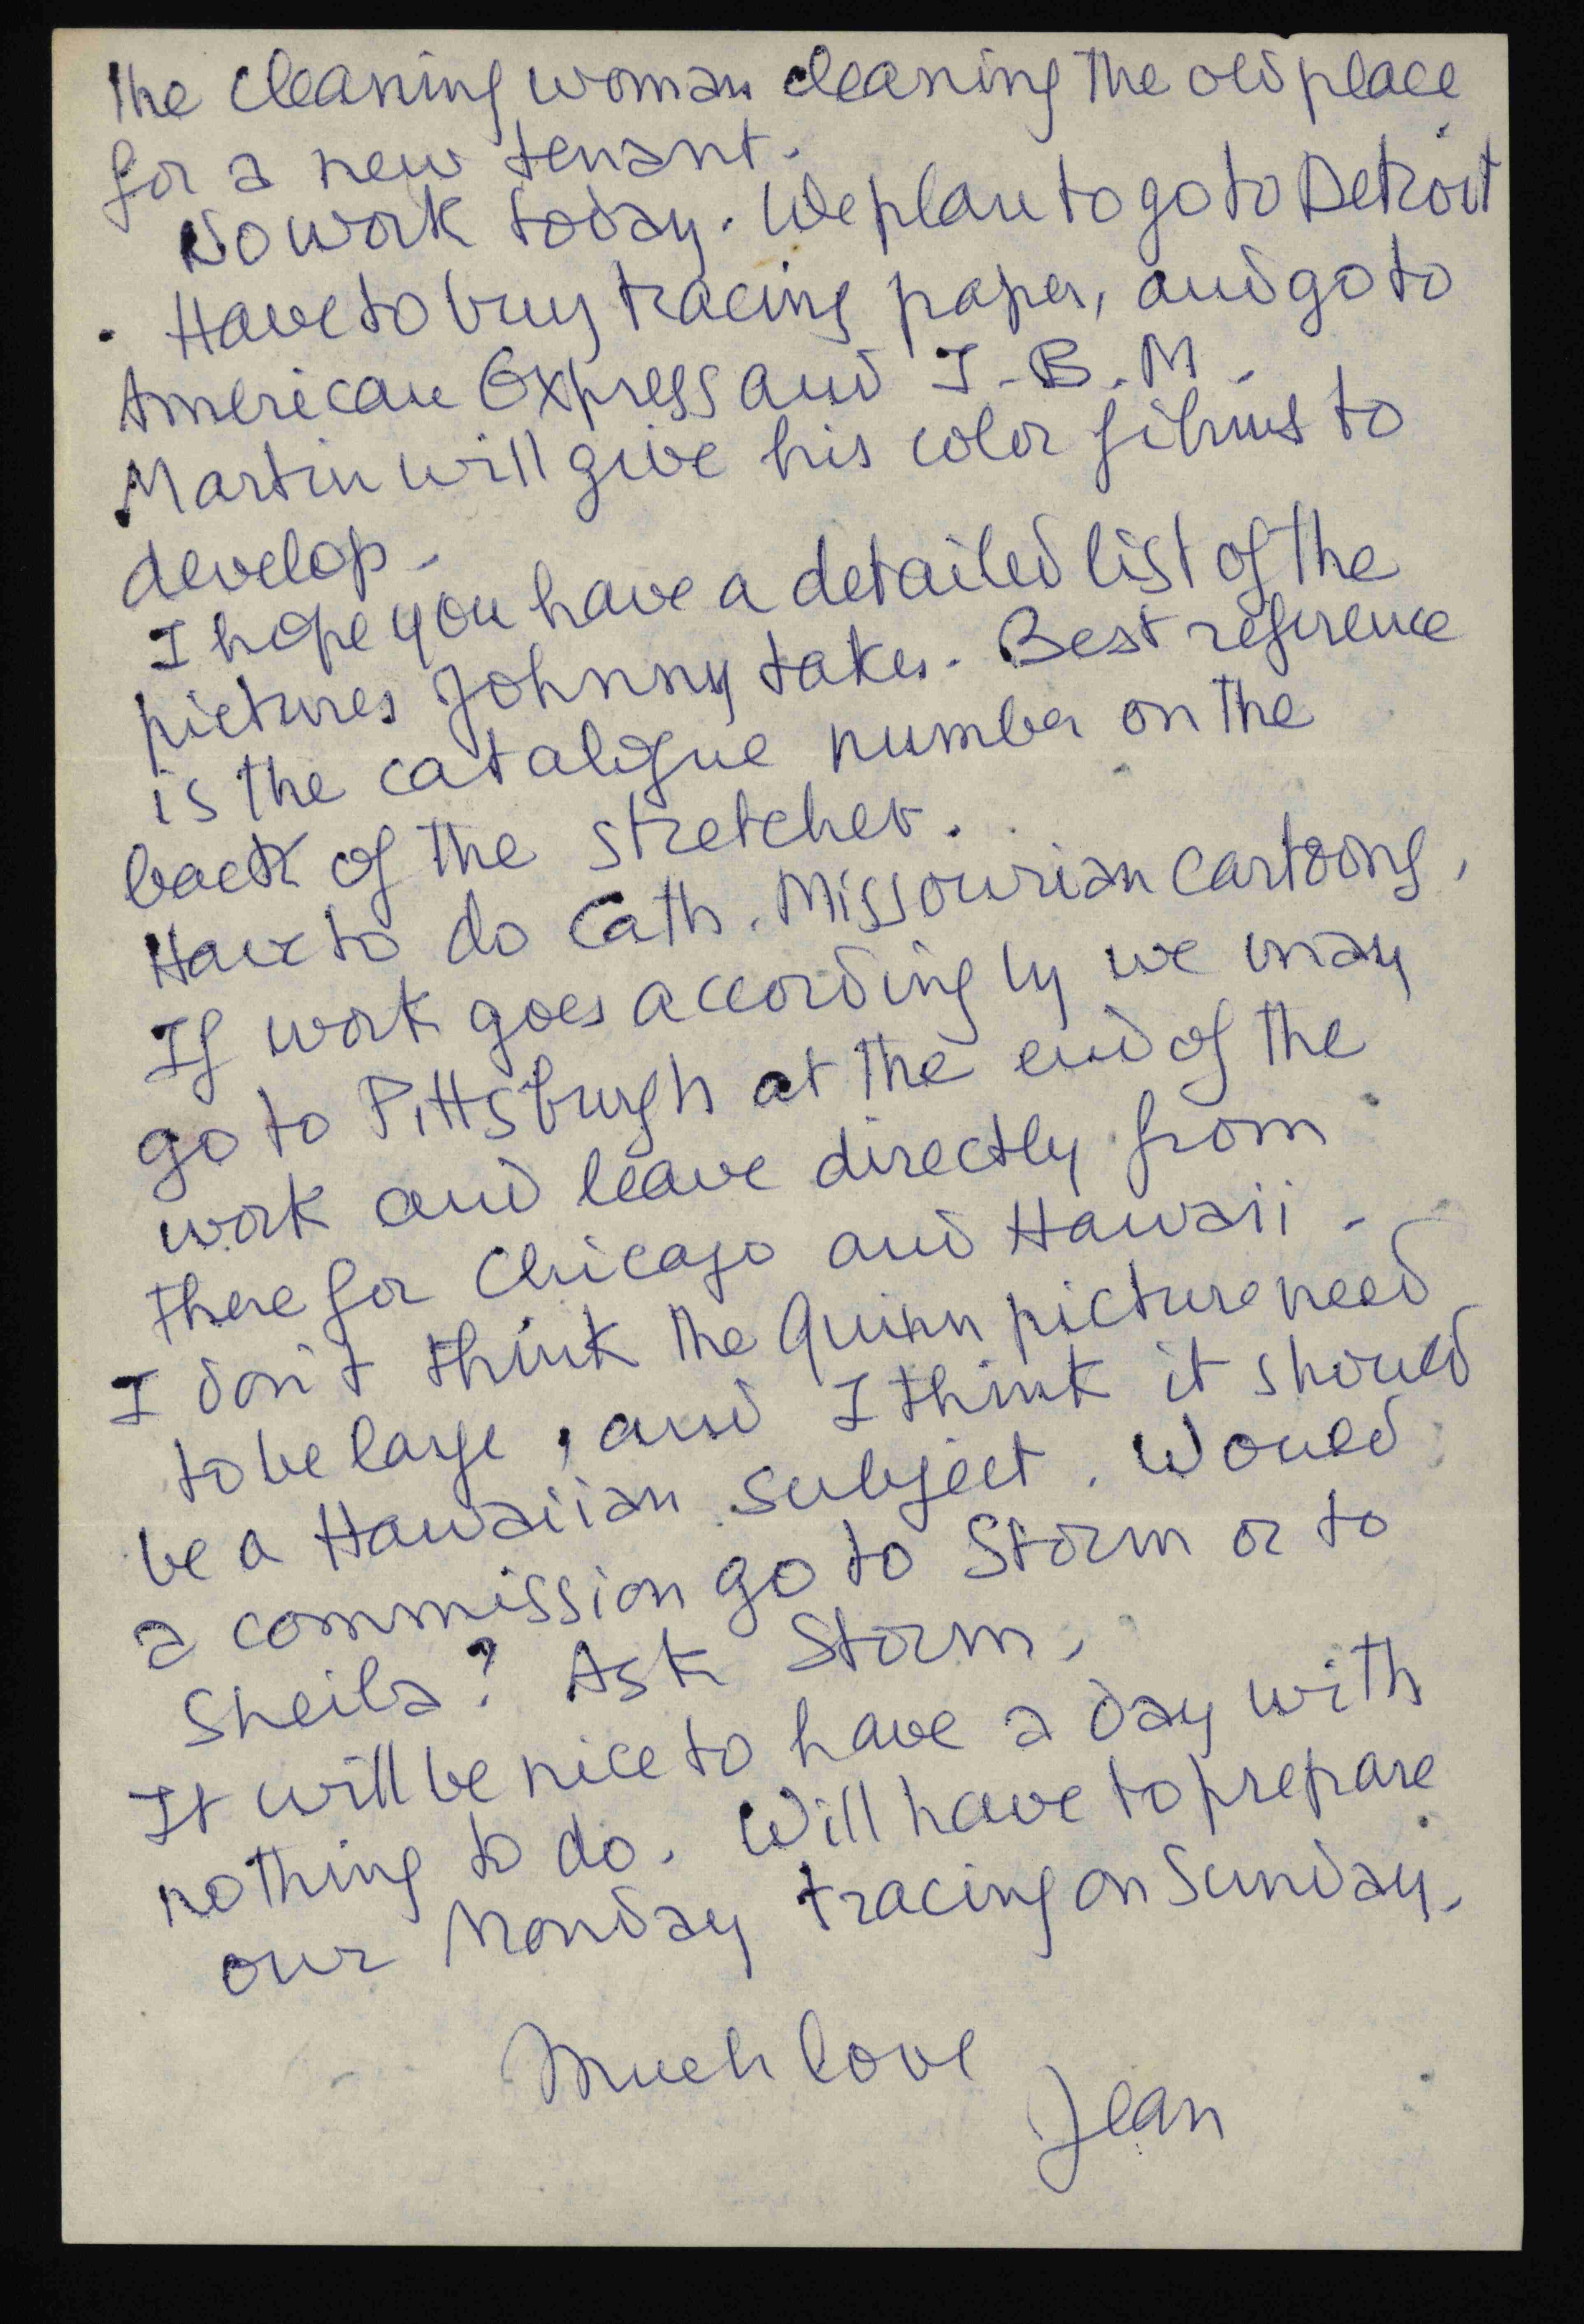 the cleaning woman cleaning the old place
for a new tenant.
No work today. We plan to go to Detroit
. Have to buy tracing paper, and go to
American Express and I.B.M.
Martin will give his color films to
develop.
I hope you have a detailed list of the
pictures Johnny takes. Best reference
is the catalogue number on the
back of the stretcher.
Have to do Cath. Missourian cartoons,
If work goes accordingly we may
go to Pittsburgh at the end of the
work and leave directly from
there for Chicago and Hawaii.
I don't think the Quinn picture need
to be large, and I think it should
be a Hawaiian subject. Would
a commission go to Storm or to
Sheila? Ask Storm.
It will be nice to have a day with
nothing to do. Will have to prepare
our Monday tracing on Sunday.
Much love
Jean